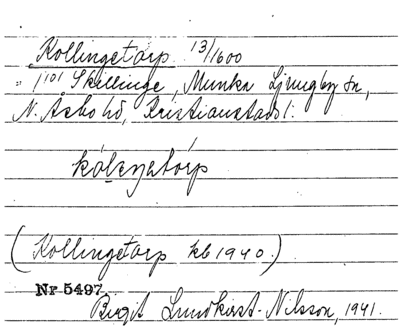 Kollingetorp 13/1600
= 1/101 Skillinge, Munka Ljungby sn,
N. Åsbo hd, Kristianstads l.
kọ́lɩŋətórp
(Kollingetorp kb 1940.)
Nr 5497
Birgit Lundkvist-Nilsson, 1941.